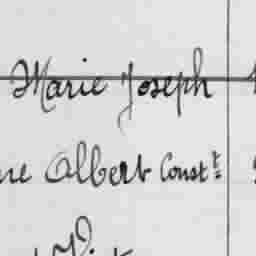 Marie Joseph
ne Albert Const.t